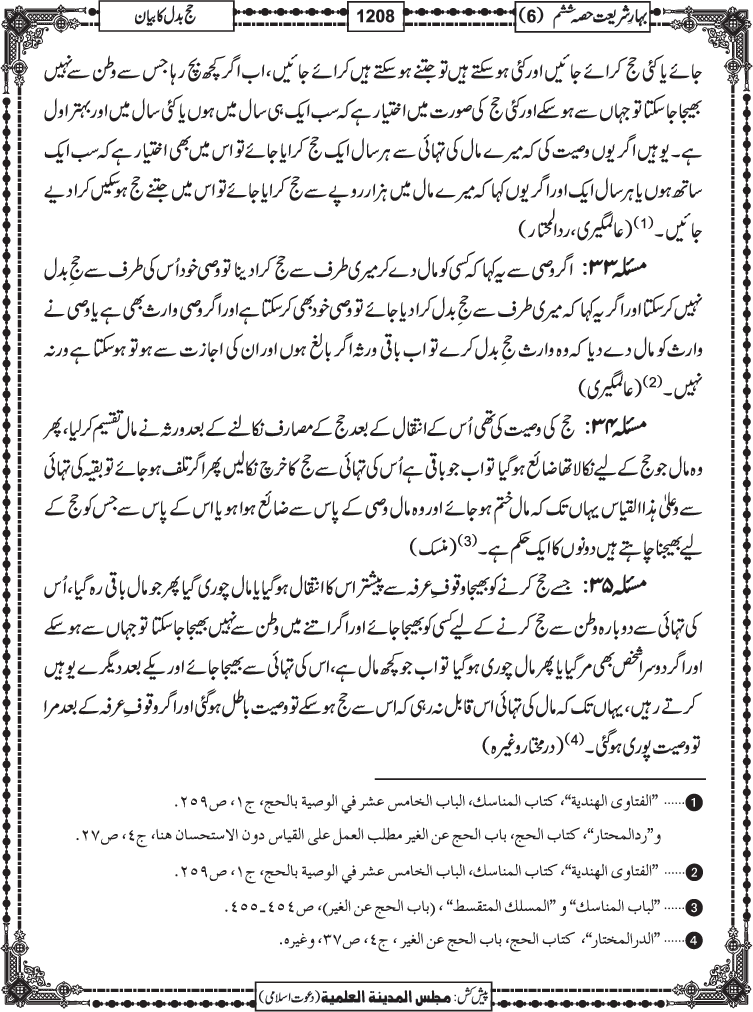 بہارِ شریعت حصہ ششم (6)
1208
حج بدل کا بیان
جائے یا کئی حج کرائے جائیں اور کئی ہوسکتے ہیں تو جتنے ہوسکتے ہیں کرائے جائیں، اب اگر کچھ بچ رہا جس سے وطن سے نہیں
بھیجا جاسکتا تو جہاں سے ہوسکے اور کئی حج کی صورت میں اختیار ہے کہ سب ایک ہی سال میں ہوں یا کئی سال میں اور بہتر اول
ہے۔ یوہیں اگر یوں وصیت کی کہ میرے مال کی تہائی سے ہر سال ایک حج کرایا جائے تو اس میں بھی اختیار ہے کہ سب ایک
ساتھ ہوں یا ہر سال ایک اور اگر یوں کہا کہ میرے مال میں ہزار روپے سے حج کرایا جائے تو اس میں جتنے حج ہوسکیں کرا دیے
جائیں۔ (1) (عالمگیری، ردالمحتار)
مسئلہ ۳۳: اگر وصی سے یہ کہا کہ کسی کو مال دے کر میری طرف سے حج کرا دینا تو وصی خود اُس کی طرف سے حجِ بدل
نہیں کرسکتا اور اگر یہ کہا کہ میری طرف سے حجِ بدل کرا دیا جائے تو وصی خود بھی کرسکتا ہے اور اگر وصی وارث بھی ہے یا وصی نے
وارث کو مال دے دیا کہ وہ وارث حجِ بدل کرے تو اب باقی ورثہ اگر بالغ ہوں اور ان کی اجازت سے ہو تو ہوسکتا ہے ورنہ
نہیں۔ (2) (عالمگیری)
مسئلہ ۳۴: حج کی وصیت کی تھی اُس کے انتقال کے بعد حج کے مصارف نکالنے کے بعد ورثہ نے مال تقسیم کرلیا، پھر
وہ مال جو حج کے لیے نکالا تھا ضائع ہوگیا تو اب جو باقی ہے اُس کی تہائی سے حج کا خرچ نکالیں پھر اگر تلف ہوجائے تو بقیہ کی تہائی
سے وعلیٰ ہذا القیاس یہاں تک کہ مال ختم ہوجائے اور وہ مال وصی کے پاس سے ضائع ہوا ہو یا اس کے پاس سے جس کو حج کے
لیے بھیجنا چاہتے ہیں دونوں کا ایک حکم ہے۔ (3) (منسک)
مسئلہ ۳۵: جسے حج کرنے کو بھیجا وقوفِ عرفہ سے پیشتر اس کا انتقال ہوگیا یا مال چوری گیا پھر جو مال باقی رہ گیا، اُس
کی تہائی سے دوبارہ وطن سے حج کرنے کے لیے کسی کو بھیجا جائے اور اگر اتنے میں وطن سے نہیں بھیجا جاسکتا تو جہاں سے ہوسکے
اور اگر دوسرا شخص بھی مرگیا یا پھر مال چوری ہوگیا تو اب جو کچھ مال ہے، اس کی تہائی سے بھیجا جائے اور یکے بعد دیگرے یوہیں
کرتے رہیں، یہاں تک کہ مال کی تہائی اس قابل نہ رہی کہ اس سے حج ہوسکے تو وصیت باطل ہوگئی اور اگر وقوفِ عرفہ کے بعد مرا
تو وصیت پوری ہوگئی۔ (4) (درمختار وغیرہ)
1 ...... "الفتاوى الهندية"، كتاب المناسك، الباب الخامس عشر في الوصية بالحج، ج١، ص٢٥٩.
و"ردالمحتار"، كتاب الحج، باب الحج عن الغير مطلب العمل على القياس دون الاستحسان هنا، ج٤، ص٢٧.
2 ...... "الفتاوى الهندية"، كتاب المناسك، الباب الخامس عشر في الوصية بالحج، ج١، ص٢٥٩.
3 ...... "لباب المناسك" و "المسلك المتقسط" ، (باب الحج عن الغير)، ص٤٥٤ـ٤٥٥.
4 ...... "الدرالمختار"، كتاب الحج، باب الحج عن الغير ، ج٤، ص٣٧، وغيره.
پیش کش: مجلس المدينة العلمية (دعوتِ اسلامی)